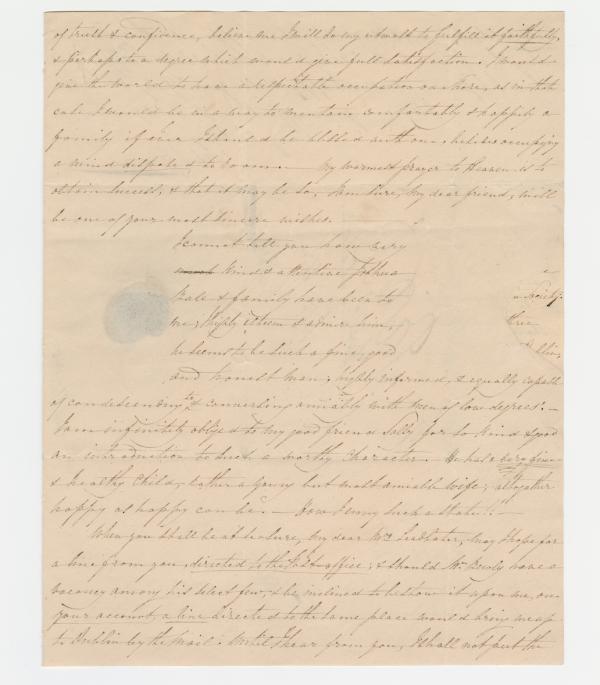 of truth & confidence, believe me I will do my utmost to fulfill it faithfully,
& perhaps to a degree which would give full satisfaction. I would
give the world to have a respectable occupation on shore, as in that
case I would be in a way to maintain comfortably & happily a
family if ever I should be blessed with one, besides occupying
a mind disposed to roam. — My warmest prayer to Heaven is to
obtain success, & that it may be so, I am sure, my dear friend, will
be one of your most sincere wishes. —
I cannot tell you how very
kind & attentive Joshua
& family have been to
me; I highly esteem & admire him,
he seems to be such a fine, good
and honest man, highly informed, & equally capable
Society.
of condescending to & conversing amiably with men of low degree. —
I am infinitely obliged to my good friend Sally for so kind & good
an introduction to such a worthy character. He has a very fine
& healthy child, & a young but most amiable wife; altogether
happy as happy can be. — How I envy such a state!! —
When you shall be at leisure, my dear Mrs Leadbeater, may I hope for
a line from you, directed to the Post office; & should Mr have a
vacancy among his select few, & be inclined to bestow it upon me, on
your account, a line directed to the same place would bring me up
to Dublin by the Mail. Until I hear from you, I shall not put the